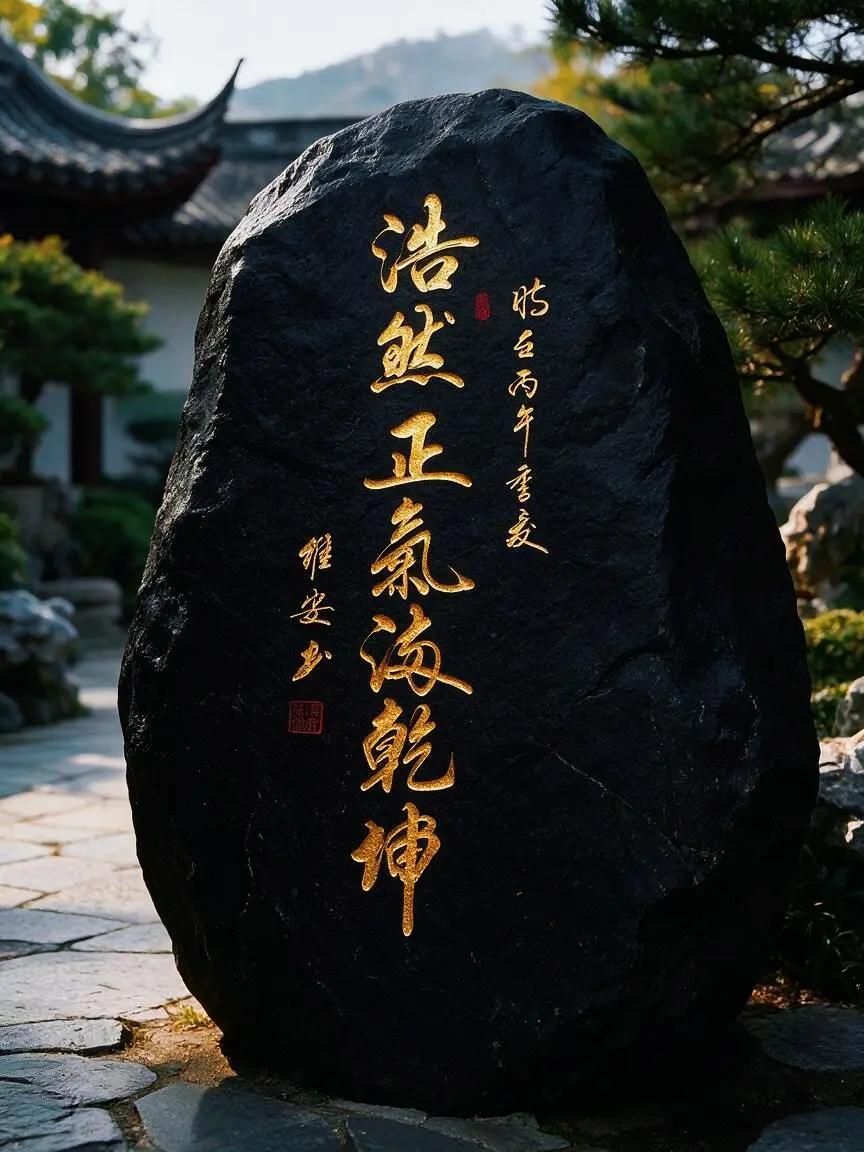 時在丙午季夏
浩然正氣海乾坤
雅安书